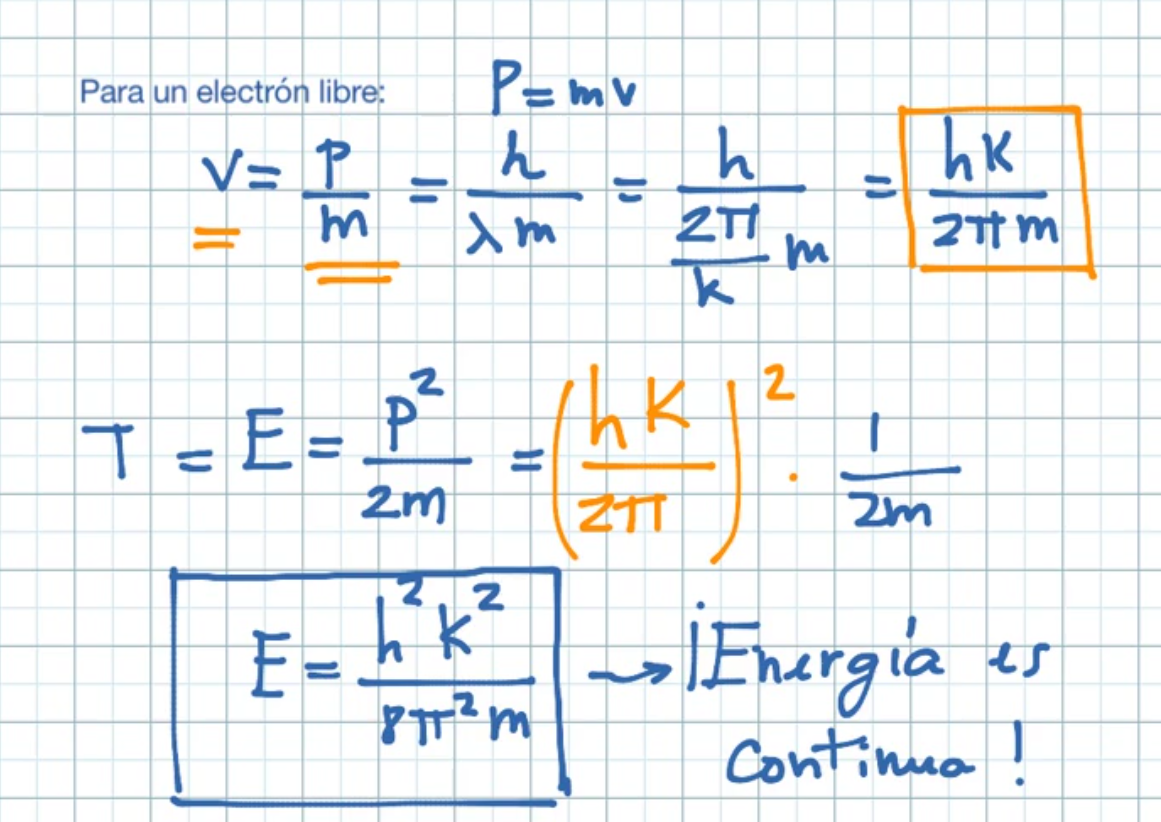 Para un electrón libre: P = mv
v = p/m = h/(λm) = h/((2π/k) m) = hk/(2πm)
T = E = p²/(2m) = (hk/(2π))² · 1/(2m)
E = h²k²/(8π²m) → ¡Energía es
continua!